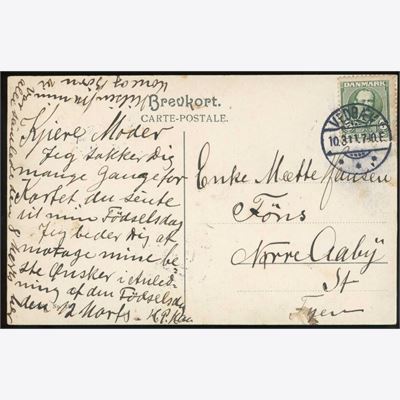 Brevkort.
CARTE-POSTALE.
DANMARK
10.3.11.7-10.E.
Kjere Moder
Jeg takker Dig
mange Gange for
Kortet du sente
til min Födselsdag
Jeg beder Dig at
motage mine be
ste Ønsker i Anled
ning af din Födselsdag
den 12 Marts.
Enke Mette Hansen
Föns
Nörre Aaby
St
Fyen